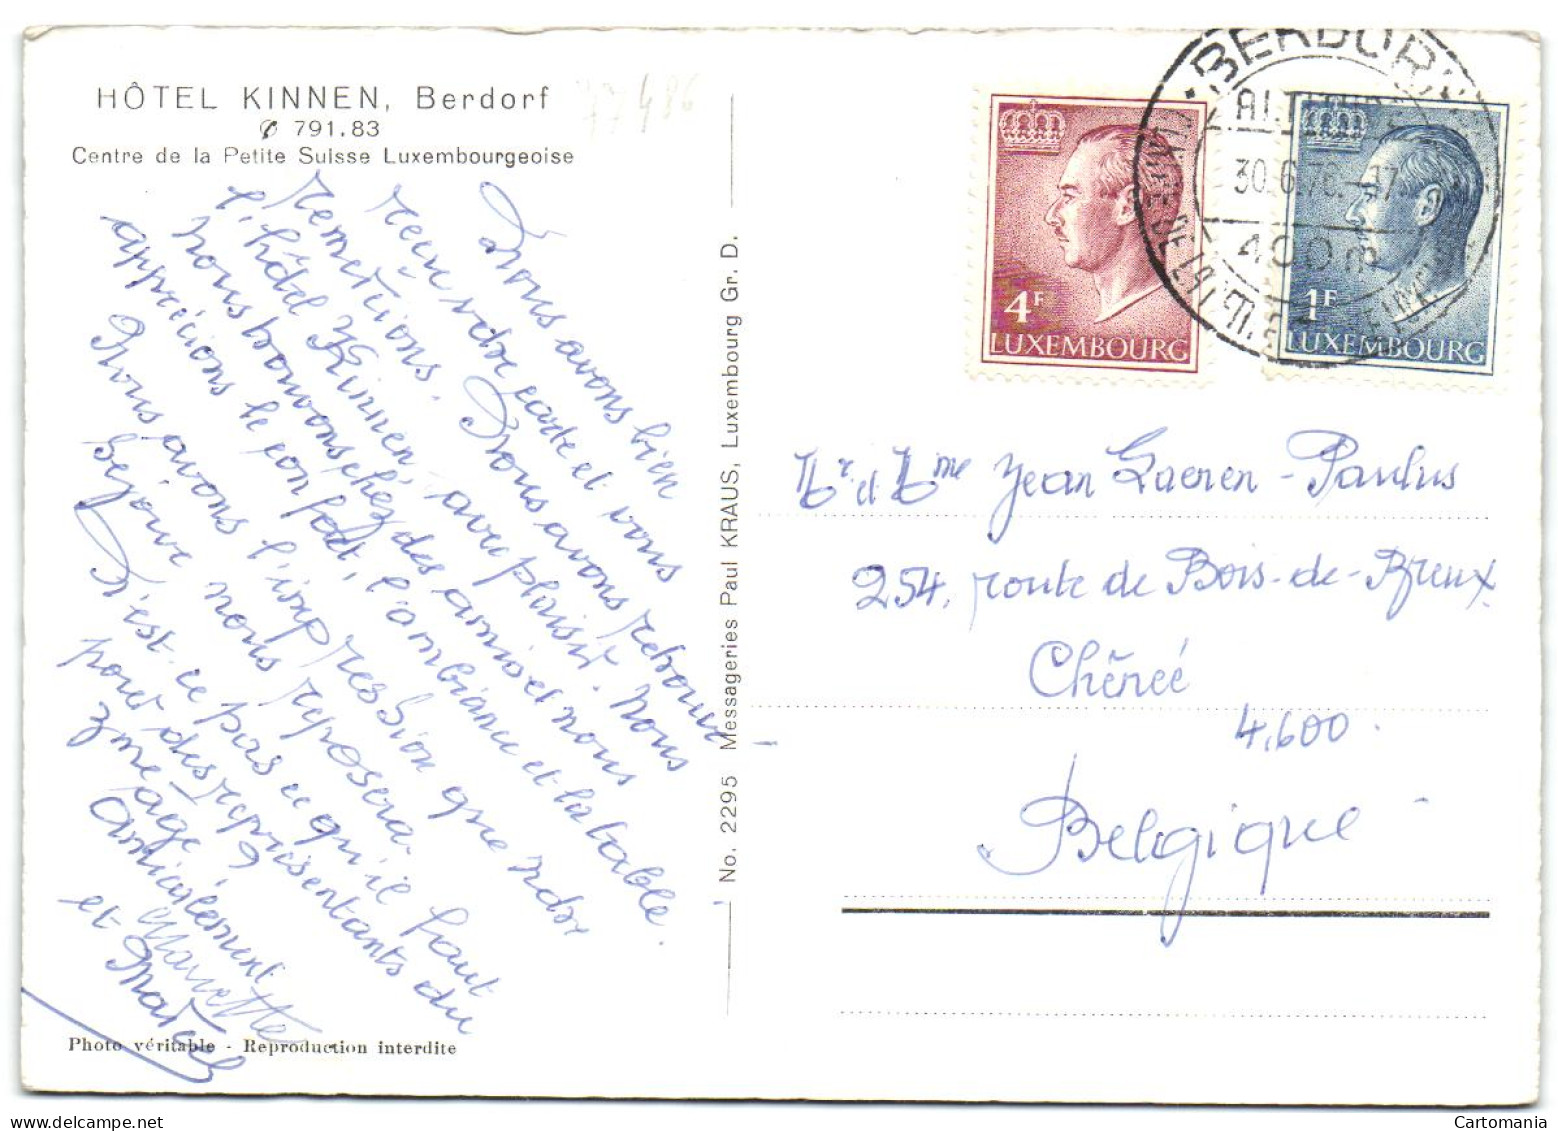 HÔTEL KINNEN, Berdorf
✆ 791.83
Centre de la Petite Suisse Luxembourgeoise
77486
Nous avons bien
reçu votre carte et vous
remercions. Nous avons retrouvé
l'hôtel Kinnen, avec plaisir. Nous
nous trouvons chez des amis et nous
apprécions le confort, l'ambiance et la table.
Nous avons l'impression que notre
séjour nous reposera.
N'est-ce pas ce qu'il faut
pour des représentants du
3me âge?
Amicalement
Mariette
et Marcel
Photo véritable - Reproduction interdite
No. 2295 Messageries Paul KRAUS, Luxembourg Gr. D.
4F
LUXEMBOURG
1F
LUXEMBOURG
BERDORF
30.6.76.-17
400 m
Mr et Mme Jean Laenen-Paulus
254, route de Bois-de-Breux
Chênée
4.600.
Belgique
Cartomania